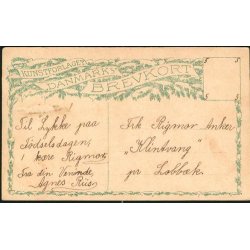 KUNSTFORLAGET
DANMARK
BREVKORT
Til Lykke paa
Fødselsdagen,
kære Rigmor,
fra din Veninde
Agnes
Frk Rigmor Anker
"Klintvang"
pr. Lobbæk.